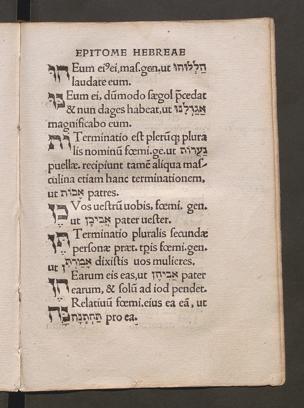 EPITOME HEBREAE
Eum eiꝰei, mas. gen, ut
laudate eum.
Eum ei, dũmodo sægol p̃cedat
& nun dages habeat, ut
magnificabo eum.
Terminatio est plerũq; plura
lis nominũ fœmi. ge. ut
puellæ. recipiunt tamẽ aliqua mas⸗
culina etiam hanc terminationem,
ut אבות patres.
Vos uestrũ uobis, fœmi. gen.
ut אביכן pater uester.
Terminatio pluralis secundæ
personæ præt. tp̃is fœmi. gen.
ut אמרתן dixistis uos mulieres.
Earum eis eas, ut אביהן pater
earum, & solũ ad iod pendet.
Relatiuũ fœmi. eius ea eã, ut
pro ea.